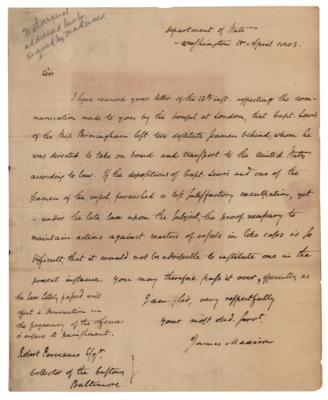 Not signed
addressed
signed by Madison
Department of State
Washington 18 April 1803.
Sir
I have received your letter of the 13th inst. respecting the com-
munication made to you by the Consul at London, that Capt. Lewis
of the Ship Birmingham left two destitute seamen behind, whom he
was directed to take on board and transport to the United States,
according to law. If the depositions of Capt. Lewis and one of the
seamen of the vessel furnished a less satisfactory exculpation, yet
under the late law upon the subject, the proof necessary to
maintain actions against masters of vessels in like cases is so
difficult, that it would not be advisable to institute one in the
present instance. You may therefore pass it over, especially as
the law lately passed will
effect a diminution in
the frequency of the offence
&
I am, Sir, very respectfully
your most obd. servt.
James Madison
Robert Purviance Esqr.
Collector of the Customs
Baltimore